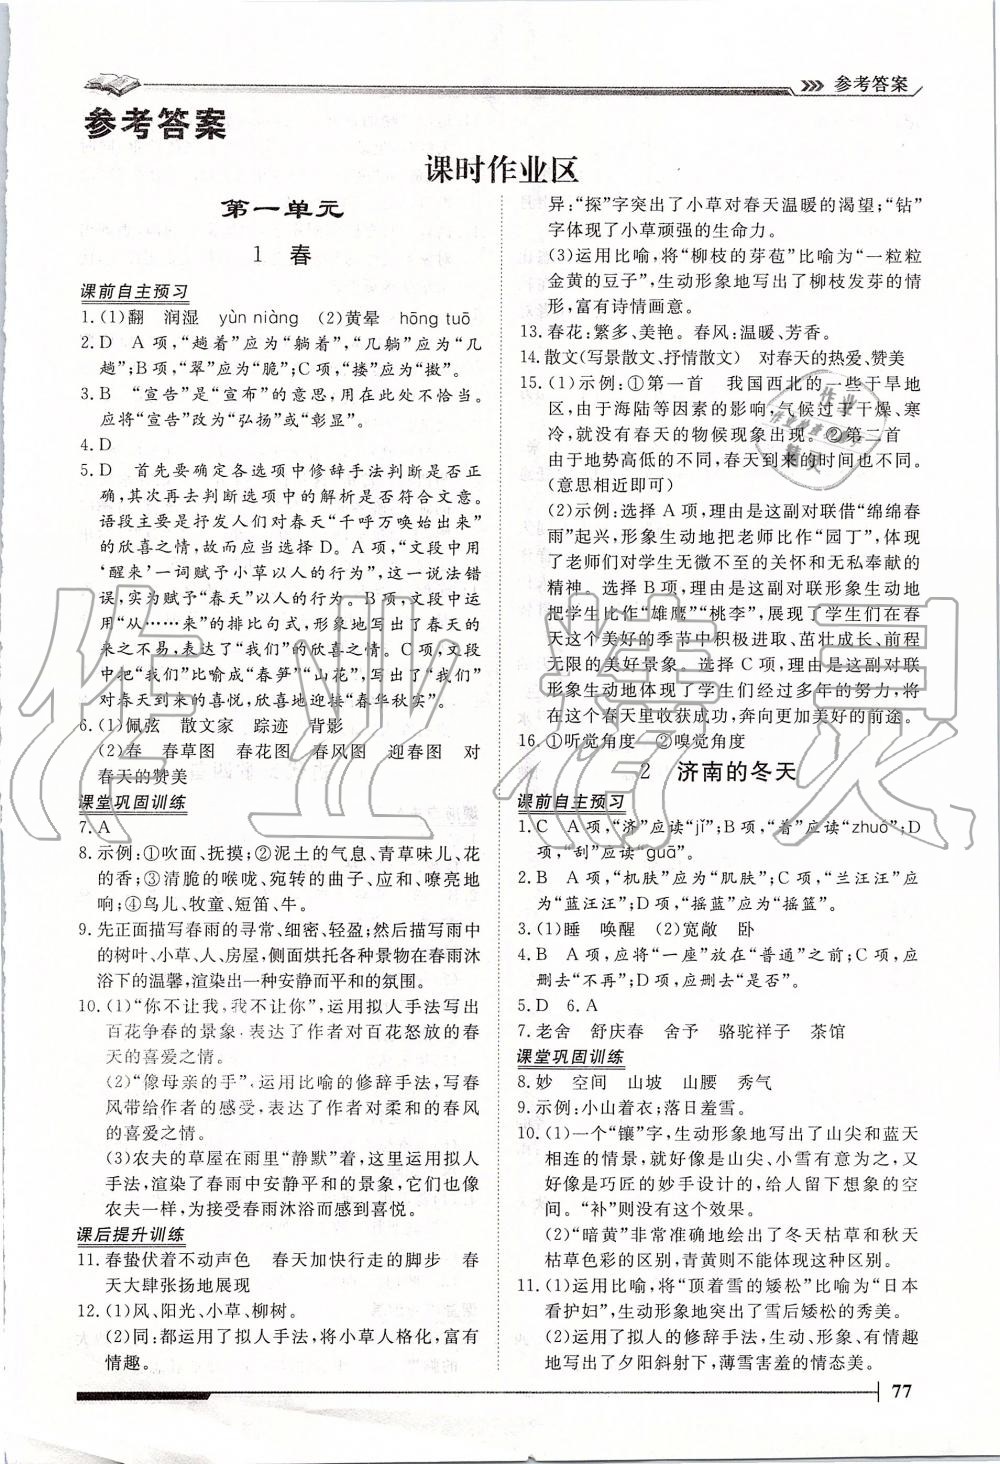 参考答案
参考答案
课时作业区
第一单元
1 春
课前自主预习
1.(1)翻 润湿 yùn niàng (2)黄晕 hōng tuō
2.D A项,“趟着”应为“躺着”,“几躺”应为“几
趟”;B项,“翠”应为“脆”;C项,“搂”应为“擞”。
3.B “宣告”是“宣布”的意思,用在此处不恰当。
应将“宣告”改为“弘扬”或“彰显”。
4.D
5.D 首先要确定各选项中修辞手法判断是否正
确,其次再去判断选项中的解析是否符合文意。
语段主要是抒发人们对春天“千呼万唤始出来”
的欣喜之情,故而应选择D。A项,“文段中用
‘醒来’一词赋予小草以人的行为”,这一说法错
误,实为赋予“春天”以人的行为。B项,文段中运
用“从……来”的排比句式,形象地写出了春天的
来之不易,表达了“我们”的欣喜之情。C项,文段
中把“我们”比喻成“春笋”“山花”,写出了“我们”
对春天到来的喜悦,欣喜地迎接“春华秋实”。
6.(1)佩弦 散文家 踪迹 背影
(2)春 春草图 春花图 春风图 迎春图 对
春天的赞美
课堂巩固训练
7.A
8.示例:①吹面、抚摸;②泥土的气息、青草味儿、花
的香;③清脆的喉咙、宛转的曲子、应和、嘹亮地
响;④鸟儿、牧童、短笛、牛。
9.先正面描写春雨的寻常、细密、轻盈;然后描写雨
中的树叶、小草、人、房屋,侧面烘托各种景物在春雨沐
浴下的温馨,渲染出一种安静而平和的氛围。
10.(1)“你不让我,我不让你”,运用拟人手法写出
百花争春的景象,表达了作者对百花怒放的春
天的喜爱之情。
(2)“像母亲的手”,运用比喻的修辞手法,写春
风带给作者的感受,表达了作者对柔和的春风
的喜爱之情。
(3)农夫的草屋在雨里“静默”着,这里运用拟人
手法,渲染了春雨中安静平和的景象,它们也像
农夫一样,为接受春雨沐浴而感到喜悦。
课后提升训练
11.春蛰伏着不动声色 春天加快行走的脚步 春
天大肆张扬地展现
12.(1)风、阳光、小草、柳树。
(2)同:都运用了拟人手法,将小草人格化,富有
情趣。
异:“探”字突出了小草对春天温暖的渴望;“钻”
字体现了小草顽强的生命力。
(3)运用比喻,将“柳枝的芽苞”比喻为“一粒粒
金黄的豆子”,生动形象地写出了柳枝发芽的情
形,富有诗情画意。
13.春花:繁多、美艳。春风:温暖、芳香。
14.散文(写景散文、抒情散文) 对春天的热爱、赞美
15.(1)示例:①第一首 我国西北的一些干旱地
区,由于海陆等因素的影响,气候过于干燥、寒
冷,就没有春天的物候现象出现。②第二首
由于地势高低的不同,春天到来的时间也不同。
(意思相近即可)
(2)示例:选择A项,理由是这副对联借“绵绵春
雨”起兴,形象生动地把老师比作“园丁”,体现
了老师们对学生无微不至的关怀和无私奉献的
精神。选择B项,理由是这副对联形象生动地
把学生比作“雄鹰”“桃李”,展现了学生们在春
天这个美好的季节中积极进取、茁壮成长、前程
无限的美好景象。选择C项,理由是这副对联
形象生动地体现了学生们经过多年的努力,将
在这个春天里收获成功,奔向更加美好的前途。
16.①听觉角度 ②嗅觉角度
2 济南的冬天
课前自主预习
1.C A项,“济”应读“jǐ”;B项,“着”应读“zhuó”;D
项,“刮”应读“guā”。
2.B A项,“机肤”应为“肌肤”;C项,“兰汪汪”应
为“蓝汪汪”;D项,“摇蓝”应为“摇篮”。
3.(1)睡 唤醒 (2)宽敞 卧
4.B A项,应将“一座”放在“普通”之前;C项,应
删去“不再”;D项,应删去“是否”。
5.D 6.A
7.老舍 舒庆春 舍予 骆驼祥子 茶馆
课堂巩固训练
8.妙 空间 山坡 山腰 秀气
9.示例:小山着衣;落日羞雪。
10.(1)一个“镶”字,生动形象地写出了山尖和蓝天
相连的情景,就好像是山尖、山岭有意为之,又
好像是巧匠的妙手设计的,给人留下想象的空
间。“补”则没有这个效果。
(2)“暗黄”非常准确地绘出了冬天枯草和秋天
枯草色彩的区别,青黄则不能体现这种区别。
11.(1)运用比喻,将“顶着雪的矮松”比喻为“日本
看护妇”,生动形象地突出了雪后矮松的秀美。
(2)运用了拟人的修辞手法,生动、形象、有情趣
地写出了夕阳斜射下,薄雪害羞的情态美。
77
作业精灵